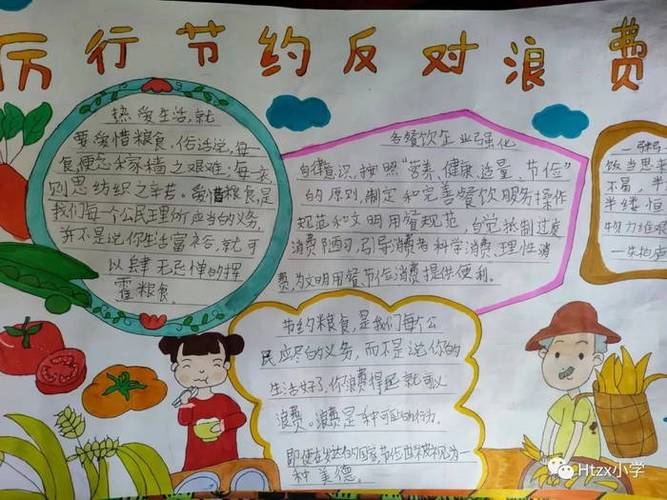 厉行节约反对浪费
热爱生活,就
要爱惜粮食,俗话说,每
食便念稼穑之艰难,每衣
则思纺织之辛苦。爱惜粮食,是
我们每个公民理所应当的义务,
并不是说你生活富裕,就可
以肆无忌惮的挥
霍粮食。
各餐饮企业强化
自律意识,按照"营养、健康、适量、节俭"
的原则,制定和完善餐饮服务操作
规范和文明用餐规范,自觉抵制过度
消费陋习,引导消费者科学消费、理性消
费,为文明用餐、节俭消费提供便利。
一粥
饭当思
不易,半
半缕恒
物力维艰
一朱柏庐
节约粮食,是我们每个公
民应尽的义务,而不是说你的
生活好了,你浪费得起就可以
浪费。浪费是一种可耻的行为。
即使在发达的国家,节俭也被视为一
种美德。
Htzx小学